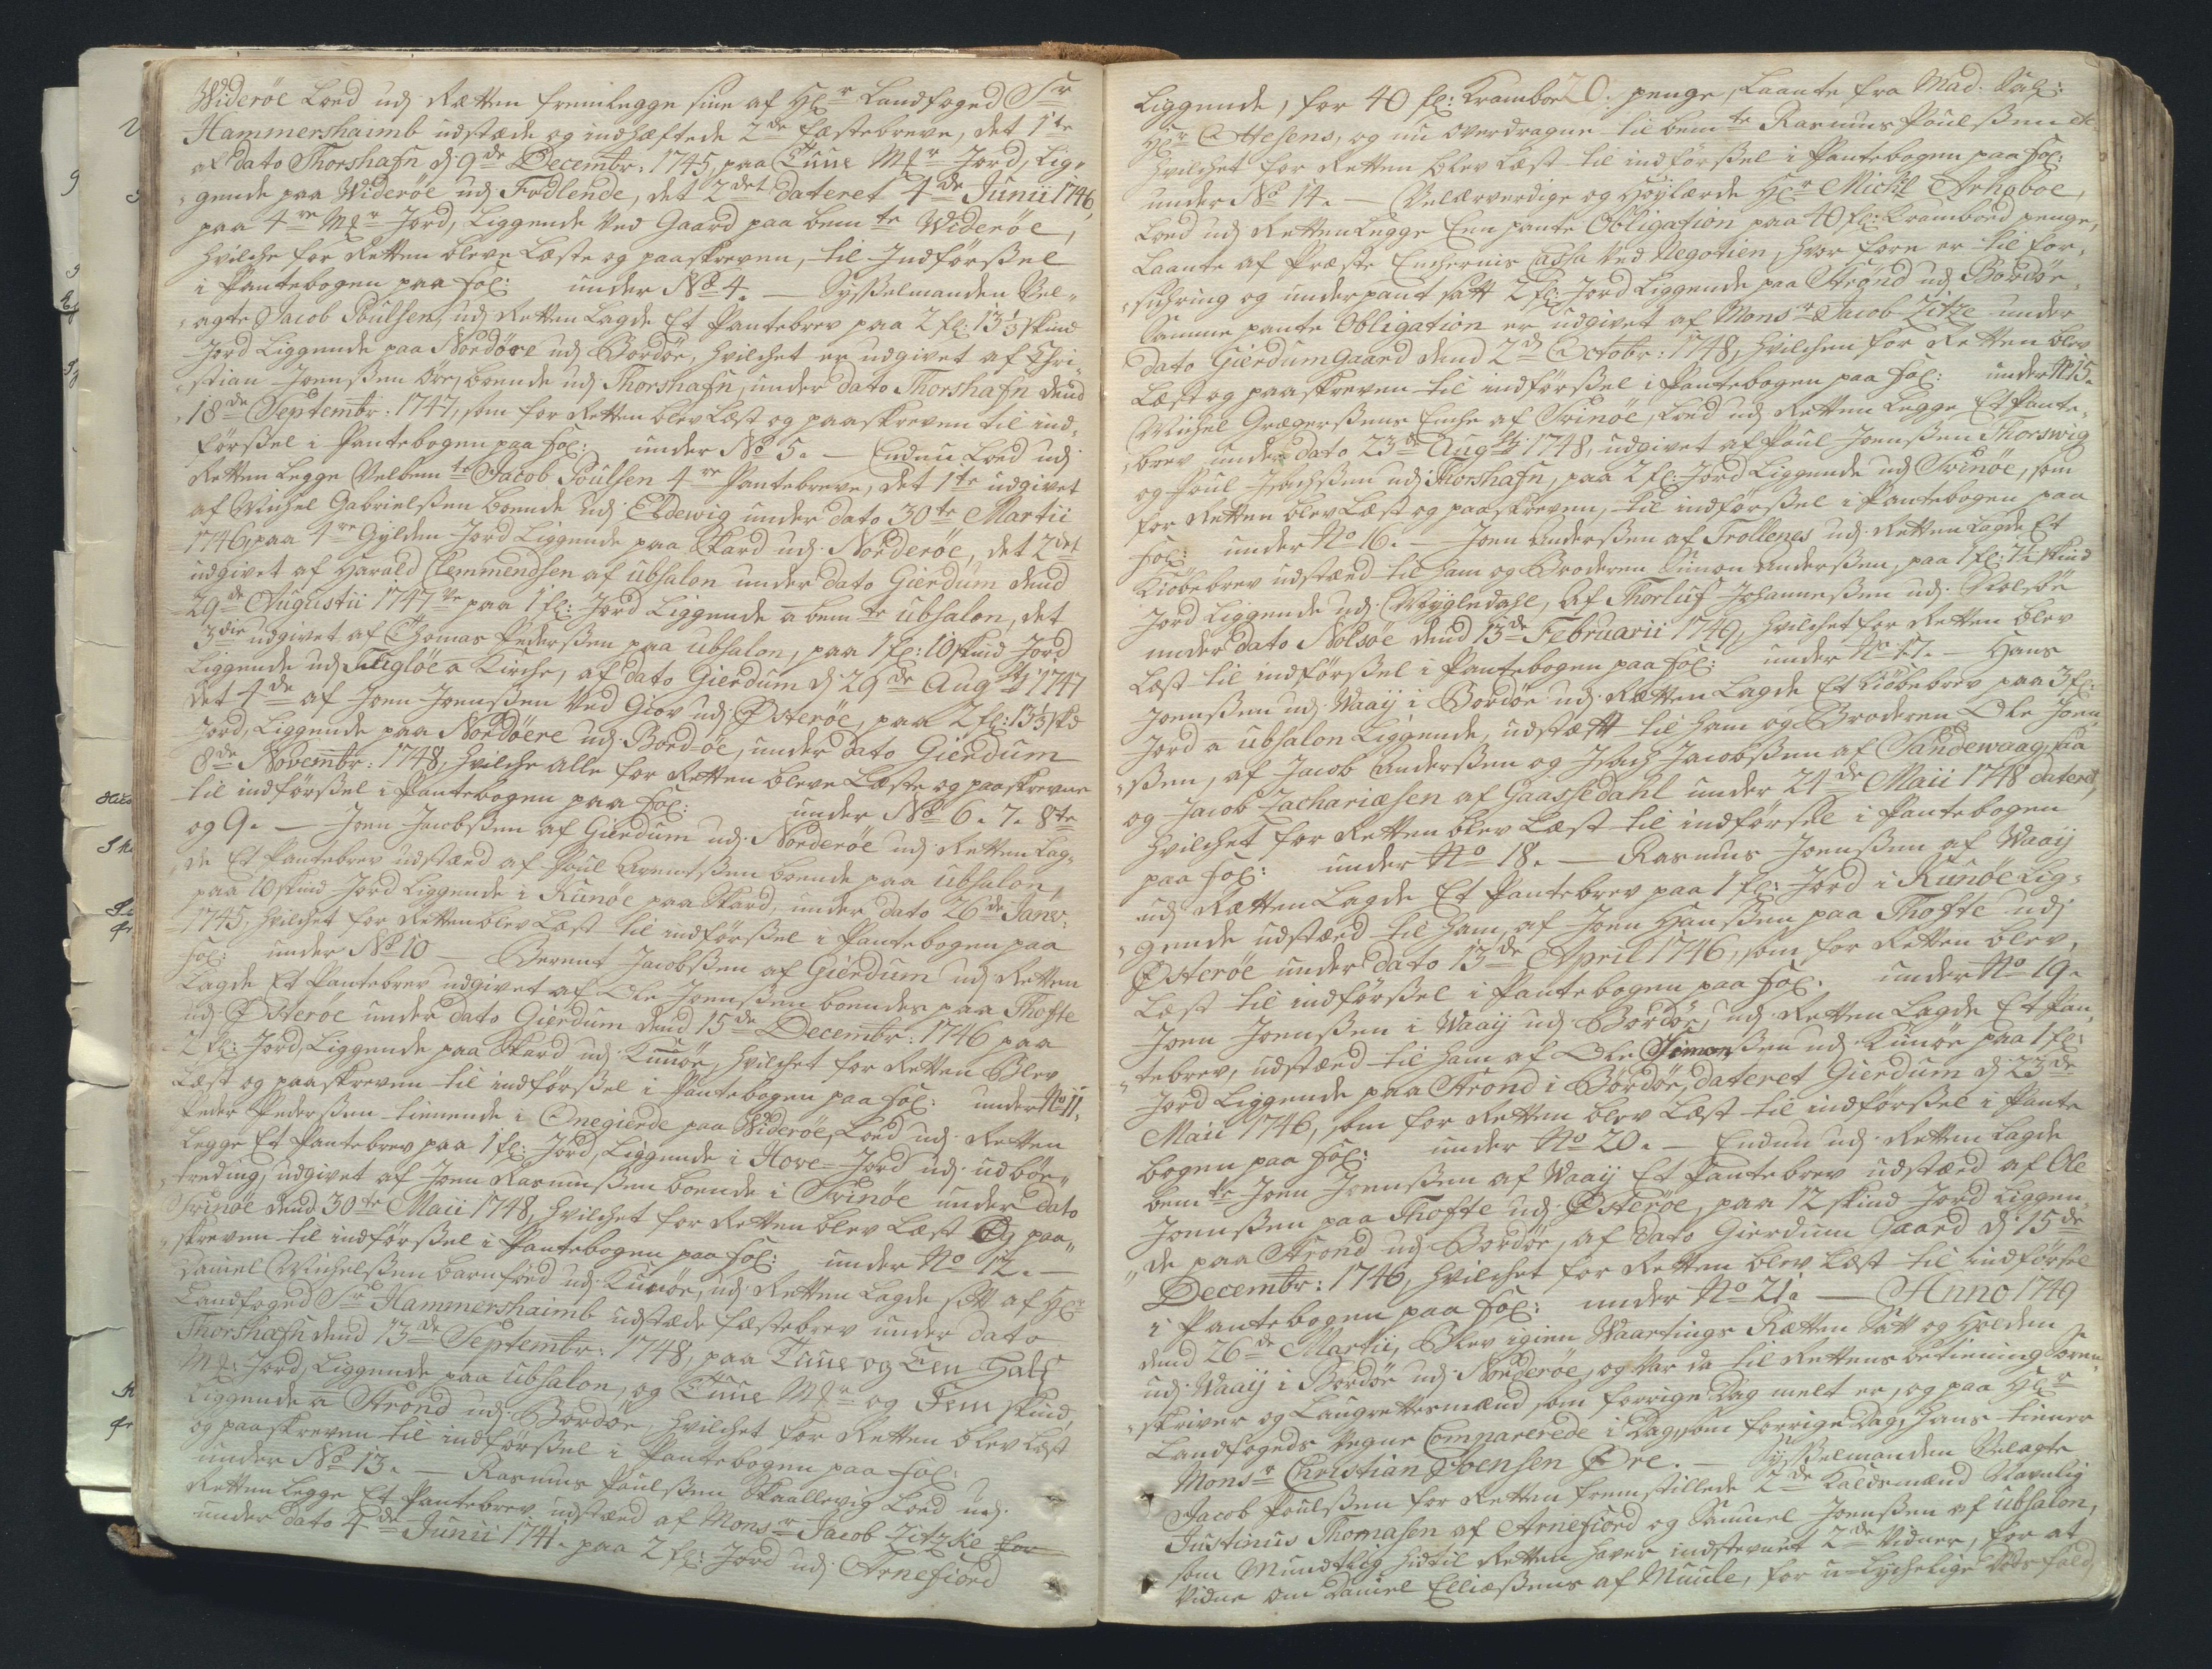 Wideröe Loed udj Rætten fremlegge sine af Hr Landfoged Sr
Hammershaimb udstæde og indhæftede 2de fæstebreve, det 1te
af dato Thorshafn d: 9de Decembr: 1745, paa Tuue Mkr Jord, Lig-
gende paa Wideröe udj Fodlende, det 2det dateret 4de Junii 1746,
paa 4re Mkr Jord, Liggende ved Gaard paa bemte Wideröe,
hvilche for Retten bleve Læste og paaskreven, til Indförßel
i Pantebogen paa fol: under No 4. — Sysselmanden Vel-
agte Jacob Poulsen, udj Retten Lagde Et Pantebrev paa 2 fl: 13⅓ skind
Jord Liggende paa Nordöre udj Bordöe, hvilchet er udgivet af Chri-
stian Joenßen öre, boende udj Thorshafn, under dato Thorshafn dend
18de Septembr: 1747, som for Retten blev Læst og paaskreven til ind-
förßel i Pantebogen paa fol: under No 5. — Endnu Loed udj
Retten Legge Velbemte Jacob Poulsen 4re Pantebreve, det 1te udgivet
af Michel Gabrielßen boende udj Eldewig under dato 30te Martii
1746, paa 4re Gylden Jord Liggende paa Skard udj Norderöe, det 2det
udgivet af Harald Clemmendsen af übsalon under dato Gierdum dend
29de Augustii 1747 paa 1 fl: Jord Liggende a bemte übsalon, det
3die udgivet af Thomas Pederßen paa übsalon, paa 1 fl: 10 skind Jord
Liggende udj Fugløe a Kirche, af dato Gierdum d: 29de Augstj 1747
det 4de af Joen Joenßen ved Giov udj Østeröe, paa 2 fl: 13⅓ skd
Jord, Liggende paa Nordöere udj Bord-öe, under dato Gierdum
8de Novembr: 1748, hvilche alle for Retten bleve Læste og paaskrevne
til indförßel i Pantebogen paa fol: under No 6. 7. 8te
og 9. — Joen Jacobßen af Gierdum udj Norderöe udj Retten Lag-
de Et Pantebrev udstæd af Poul boende paa übsalon,
paa 10 skind Jord Liggende i Kunöe paa Skard, under dato 26de Janvr:
1745, hvilchet for Retten blev Læst til indförßel i Pantebogen paa
fol: under No 10 — Berent Jacobßen af Gierdum udj Retten
Lagde Et Pantebrev udgivet af Ole Joenßen boendes paa Thofte
udj Østeröe under dato Gierdum dend 15de Decembr: 1746 paa
2 fl: Jord, Liggende paa Skard udj Kunöe, hvilchet for Retten Blev
Læst og paaskreven til indförßel i Pantebogen paa fol: under No 11.
Peder Pederßen tienende i Onegierde paa Wideröe, Loed udj Retten
Legge Et Pantebrev paa 1 fl: Jord, Liggende i Hove-Jord udj
udgivet af Joen Rasmusßen boende i Svinöe under dato
Svinöe dend 30te Maii 1748, hvilchet for Retten blev Læst og paa-
skreven til indförßel i Pantebogen paa fol: under No 12. —
Daniel Michelßen barnfød udj Kunöe, udj Retten Lagde sitt af Hr
Landfoged Sr Hammershaimb udstæde fæstebrev under dato
Thorshafn dend 13de Septembr: 1748, paa Tuue og Een Half
Mk: Jord, Liggende paa übsalon, og Tuue Mkr og Fem skind,
Liggende a Strönd udj Bordöe, hvilchet for Retten blev Læst
og paaskreven til indförßel i Pantebogen paa fol:
under No 13. — Rasmus Poulßen Skaallevig Loed udj
Retten Legge Et Pantebrev udstæd af Monsr Jacob Zitzke for
under dato 4de Junii 1741. paa 2 fl: Jord udj Arnefiord
20.
Liggende, for 40 fl: Kramboe penge, Laante fra Mad. Sal:
Hr Ottesens, og nu overdragne til bemte Rasmus Poulßen
hvilchet for Retten blev Læst til indförßel i Pantebogen paa fol:
under No 14. — Velærverdige og Høylærde Hr Michl Arhoboe,
Loed udj Retten Legge Een pante Obligation paa 40 fl: Krambod penge,
Laante af Præste Enchernis Cassa ved Negotien, hvor fore er til for-
sichring og underpant satt 2 fl: Jord Liggende paa Strönd udj Bordöe.
Samme pante Obligation er udgivet af Monsr Jacob Zitze under
dato Gierdumgaard dend 2de Octobr: 1748, hvilchen for Retten blev
Læst og paaskreven til indförßel i Pantebogen paa fol: under No 15.
Michel Grægerßens Enche af Svinöe, Loed udj Retten Legge Et Pante-
brev under dato 23de Augstj 1748, udgivet af Poul Joenßen Thorswig
og Poul Isachßen udj Thorshafn, paa 2 fl: Jord Liggende udj Svinöe, som
for Retten blev Læst og paaskreven, til indförßel i Pantebogen paa
fol: under No 16. — Joen Anderßen af Trollenes udj Retten Lagde Et
Kiöbebrev udstæd til ham og Broderen Simon Anderßen, paa 1 fl: skind
Jord Liggende udj Mygledahl, af Thorluf Johanneßen udj Nolsöe
under dato Nolsöe dend 13de Februarii 1749, hvilchet for Retten blev
Læst til indförßel i Pantebogen paa fol: under No 17. — Hans
Joenßen udj Waaij i Bordöe udj Retten Lagde Et Kiöbebrev paa 3 fl:
Jord a übsalon Liggende, udstætt til ham og Broderen Ole Joen-
ßen, af Jacob Anderßen og Isach Jacobßen af Sandewaag, saa
og Jacob Zachariæsen af Gaassedahl under 21de Maii 1748 dateret,
hvilchet for Retten blev Læst til indförßel i Pantebogen
paa fol: under No 18. — Rasmus Joenßen af Waaij
udj Rætten Lagde Et Pantebrev paa 1 fl: Jord i Kunöe Lig-
gende udstæd til ham, af Joen Hanßen paa Thofte udj
Østeröe under dato 13de April 1746, som for Retten blev,
Læst til indförßel i Pantebogen paa fol: under No 19.
Joen Joenßen i Waaij udj Bordöe, udj Retten Lagde Et Pan-
tebrev, udstæd til ham af Ole Simonßen udj Kunöe paa 1 fl:
Jord Liggende paa Strond i Bordöe, dateret Gierdum d: 23de
Maii 1746, som for Retten blev Læst til indförßel i Pante
bogen paa fol: under No 20. — Endnu udj Retten Lagde
bemte Joen Joenßen af Waaij Et Pantebrev udstæd af Ole
Joenßen paa Thofte udj Østeröe, paa 12 skind Jord Liggen-
de paa Strond udj Bordöe, af dato Gierdum Gaard d: 15de
Decembr: 1746, hvilchet for Retten blev Læst til indförßel
i Pantebogen paa fol: under No 21. — Anno 1749
dend 26de Martii, Blev igien Waartings Retten Satt og Holden
udj Waaij i Bordöe udj Norderöe, og var da til Rettens betiening Soren-
skriver og Laugrettesmænd som forrige Dag melt er, og paa Hr
Landfogeds vegne Comparerede i Dag, som forrige Dag, hans tiener
Monsr Christian Joensen Øre. — Sysselmanden Velagte
Jacob Poulßen for Retten fremstillede 2de Kaldsmænd Navnlig
Justinus Thomasen af Arnefiord og Samuel Joenßen af übsalon,
som Mundtlig hidtil Retten haver indstevnt 2de Vidner, for at
Vidne om Daniel Elliæßens af Muule, for u-Lychelige